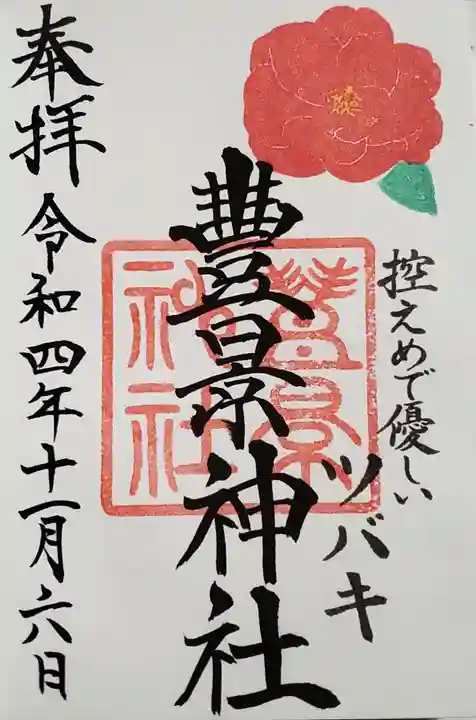 控えめで優しい
ツバキ
豊景神社
豊景神社
奉拝
令和四年十一月六日